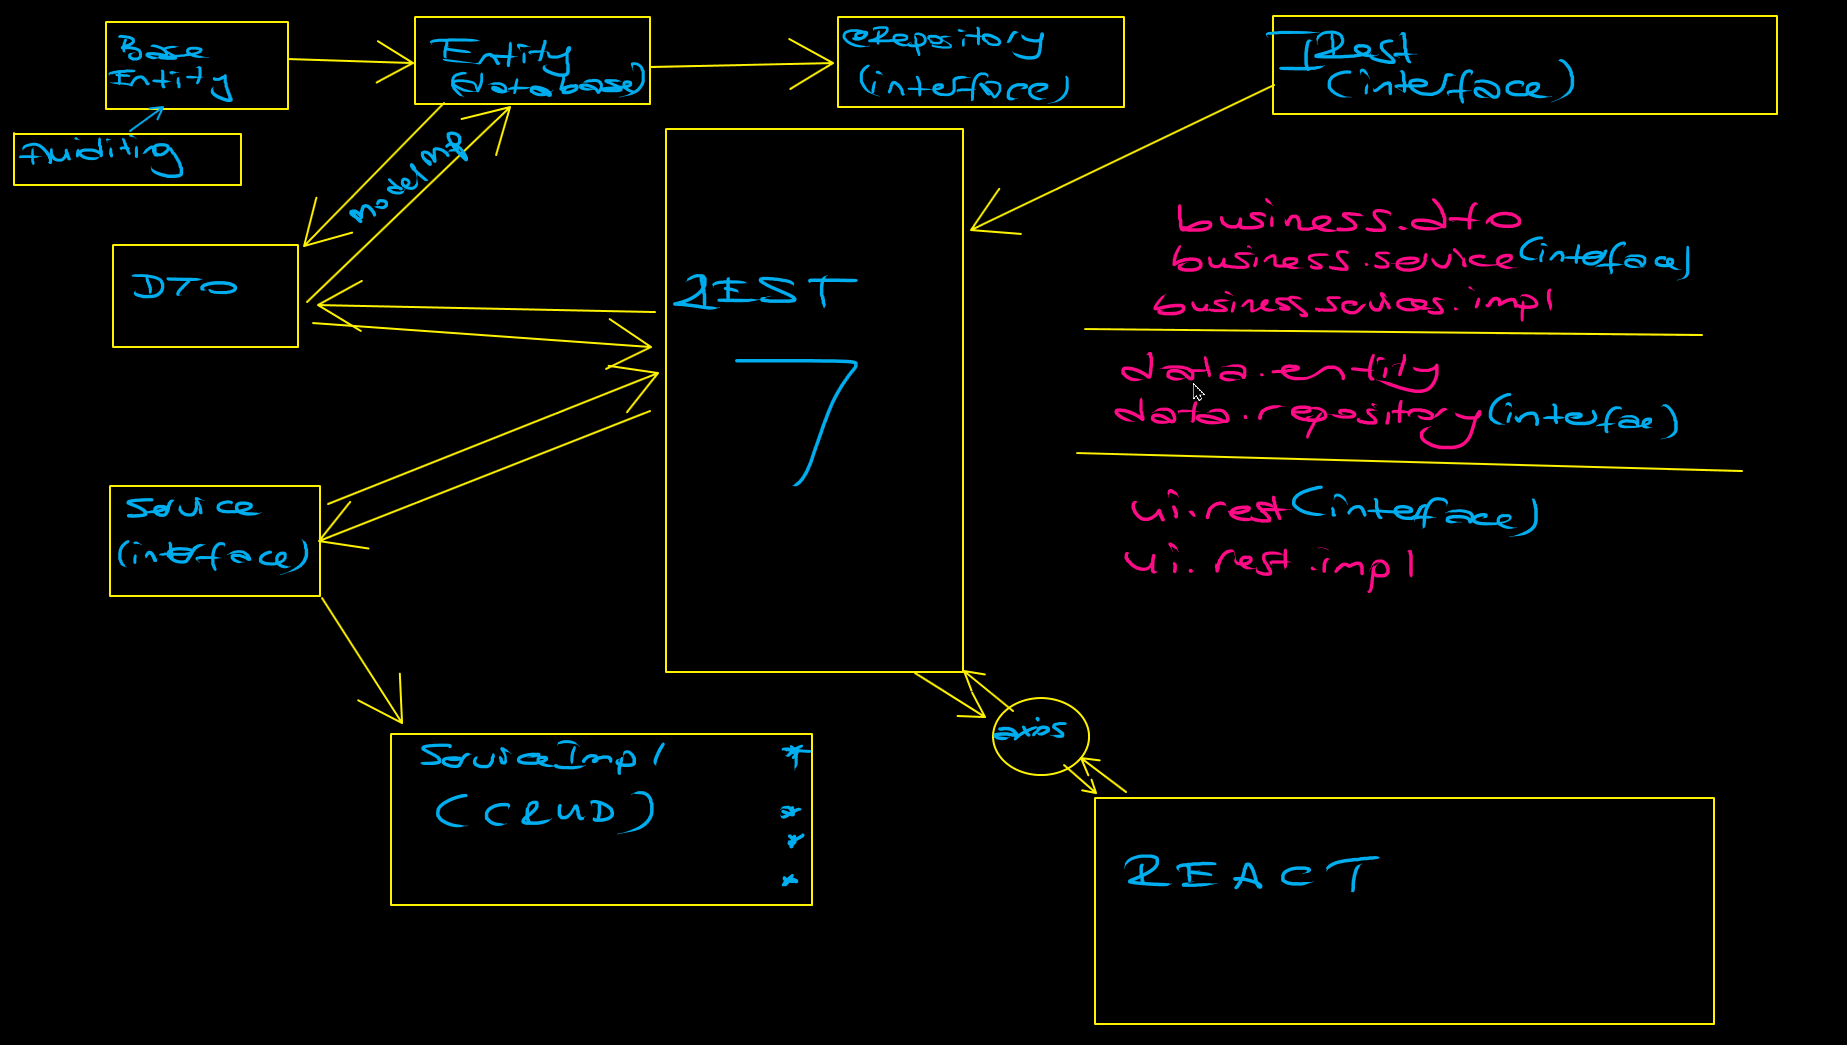 Base
Entity
Entity
(database)
@Repository
(interface)
IRest
(interface)
Auiditing
ModelMp
DTO
REST
7
business.dto
business.service(interface)
business.sevices.impl
data.entity
data.repository(interfae)
ui.rest(interface)
ui.rest.impl
Service
(interface)
axios
ServiceImpl *
(CRUD) *
*
*
REACT